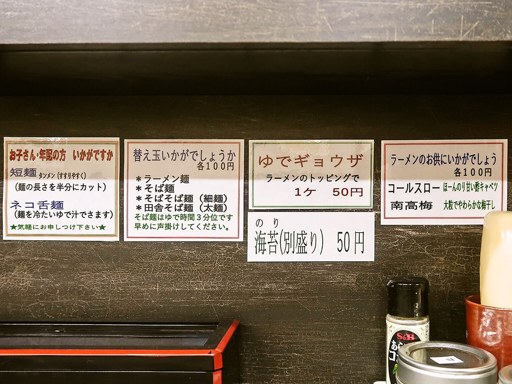 お子さん・年配の方　いかがですか
短麺 タンメン(すすりやすく)
(麺の長さを半分にカット)
ネコ舌麺
(麺を冷たいゆで汁でさます)
★気軽にお申しつけ下さい★
替え玉いかがでしょうか
各100円
*ラーメン麺
*そば麺
*そばそば麺（細麺）
*田舎そば麺（太麺）
そば麺はゆで時間3分位です
早めに声掛けしてください。
ゆでギョウザ
ラーメンのトッピングで
1ケ　50円
のり
海苔(別盛り)　50円
ラーメンのお供にいかがでしょう
各100円
コールスロー ほーんのり甘い酢キャベツ
南高梅　大粒でやわらかな梅干し
S&B